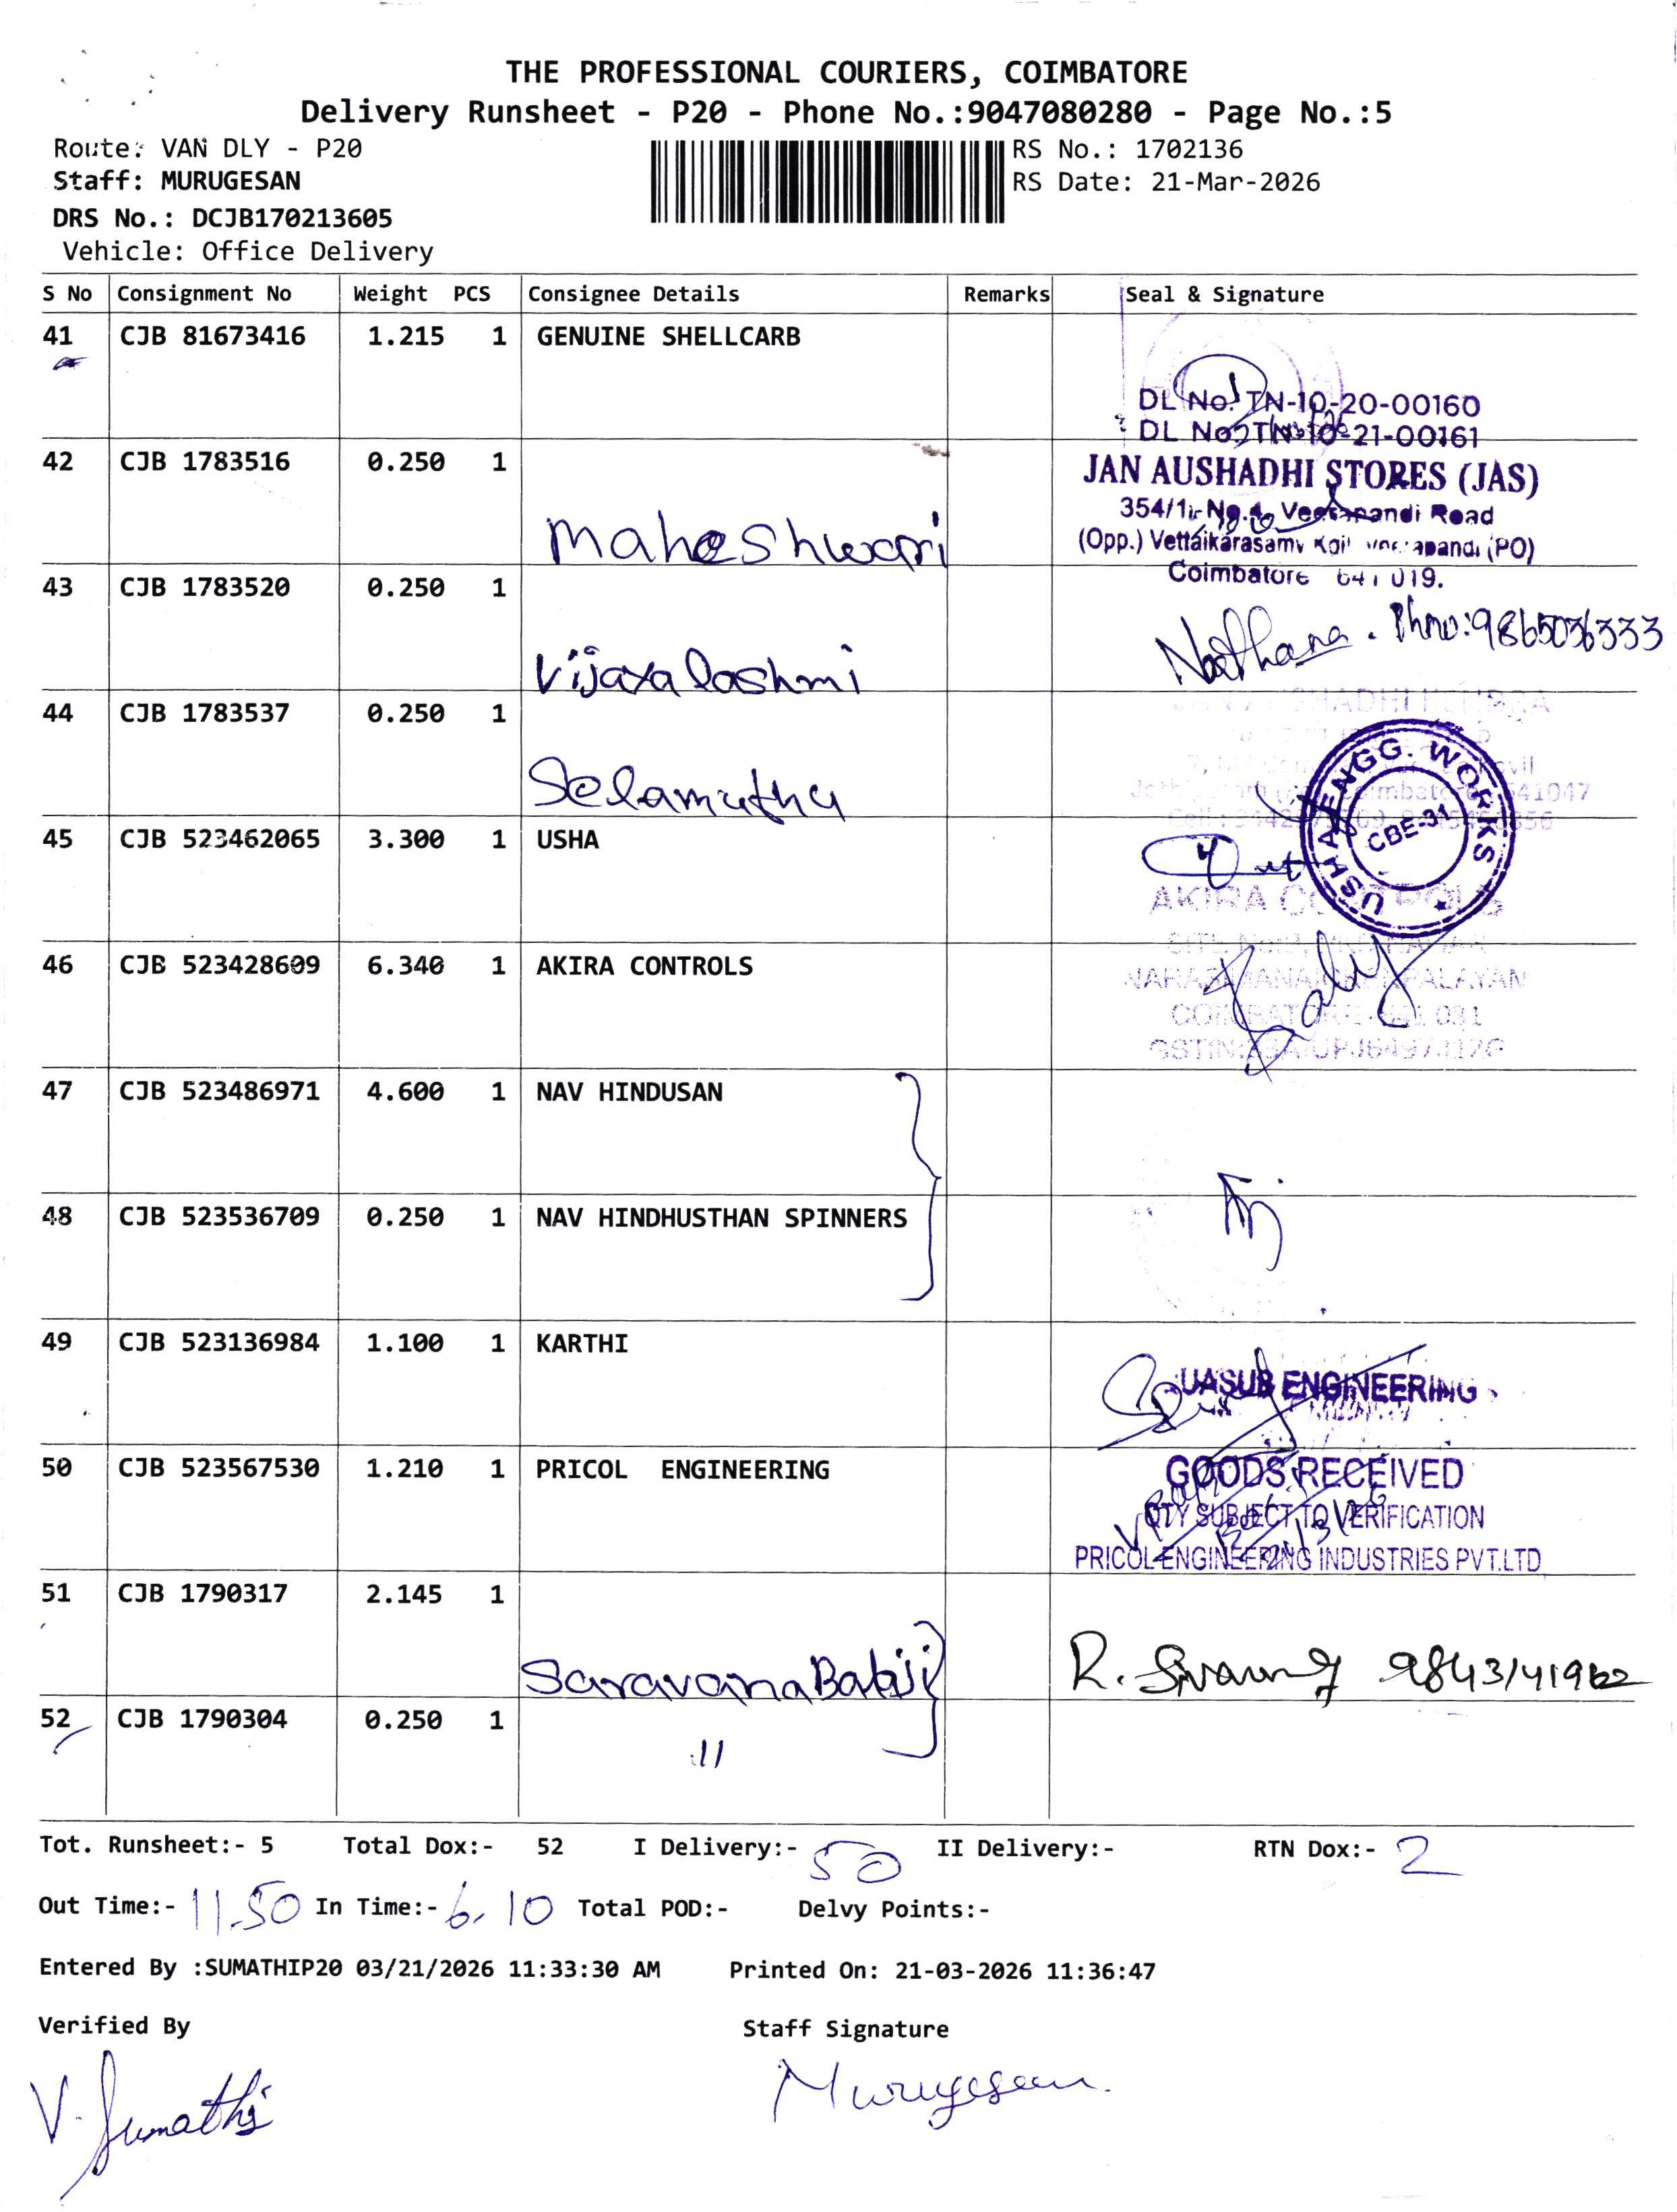 THE PROFESSIONAL COURIERS, COIMBATORE
Delivery Runsheet - P20 - Phone No.:9047080280 - Page No.:5
Route: VAN DLY - P20
RS No.: 1702136
Staff: MURUGESAN
RS Date: 21-Mar-2026
DRS No.: DCJB170213605
Vehicle: Office Delivery
S No Consignment No Weight PCS Consignee Details Remarks Seal & Signature
41 CJB 81673416 1.215 1 GENUINE SHELLCARB
DL No. TN-10-20-00160
DL No. TN-10-21-00161
42 CJB 1783516 0.250 1 Maheshwari
JAN AUSHADHI STORES (JAS)
354/1, No.4, Veerapandi Road
(Opp.) Vettaikarasamy Koil (PO)
Coimbatore 641 019.
43 CJB 1783520 0.250 1 Vijayalashmi
Phno:9865036333
44 CJB 1783537 0.250 1 Selamuthu
45 CJB 523462065 3.300 1 USHA
USHA ENGG. WORKS
CBE-31
46 CJB 523428609 6.340 1 AKIRA CONTROLS
AKIRA CONTROLS
COIMBATORE - 641 031
47 CJB 523486971 4.600 1 NAV HINDUSAN
48 CJB 523536709 0.250 1 NAV HINDHUSTHAN SPINNERS
49 CJB 523136984 1.100 1 KARTHI
UASUB ENGINEERING
50 CJB 523567530 1.210 1 PRICOL ENGINEERING
GOODS RECEIVED
QTY SUBJECT TO VERIFICATION
PRICOL ENGINEERING INDUSTRIES PVT.LTD
51 CJB 1790317 2.145 1 Saravana Babji
R. 9843141962
52 CJB 1790304 0.250 1 "
Tot. Runsheet:- 5 Total Dox:- 52 I Delivery:- 50 II Delivery:- RTN Dox:- 2
Out Time:- 11.50 In Time:- 6.10 Total POD:- Delvy Points:-
Entered By :SUMATHIP20 03/21/2026 11:33:30 AM Printed On: 21-03-2026 11:36:47
Verified By Staff Signature
V. Sumathi Murugesan.